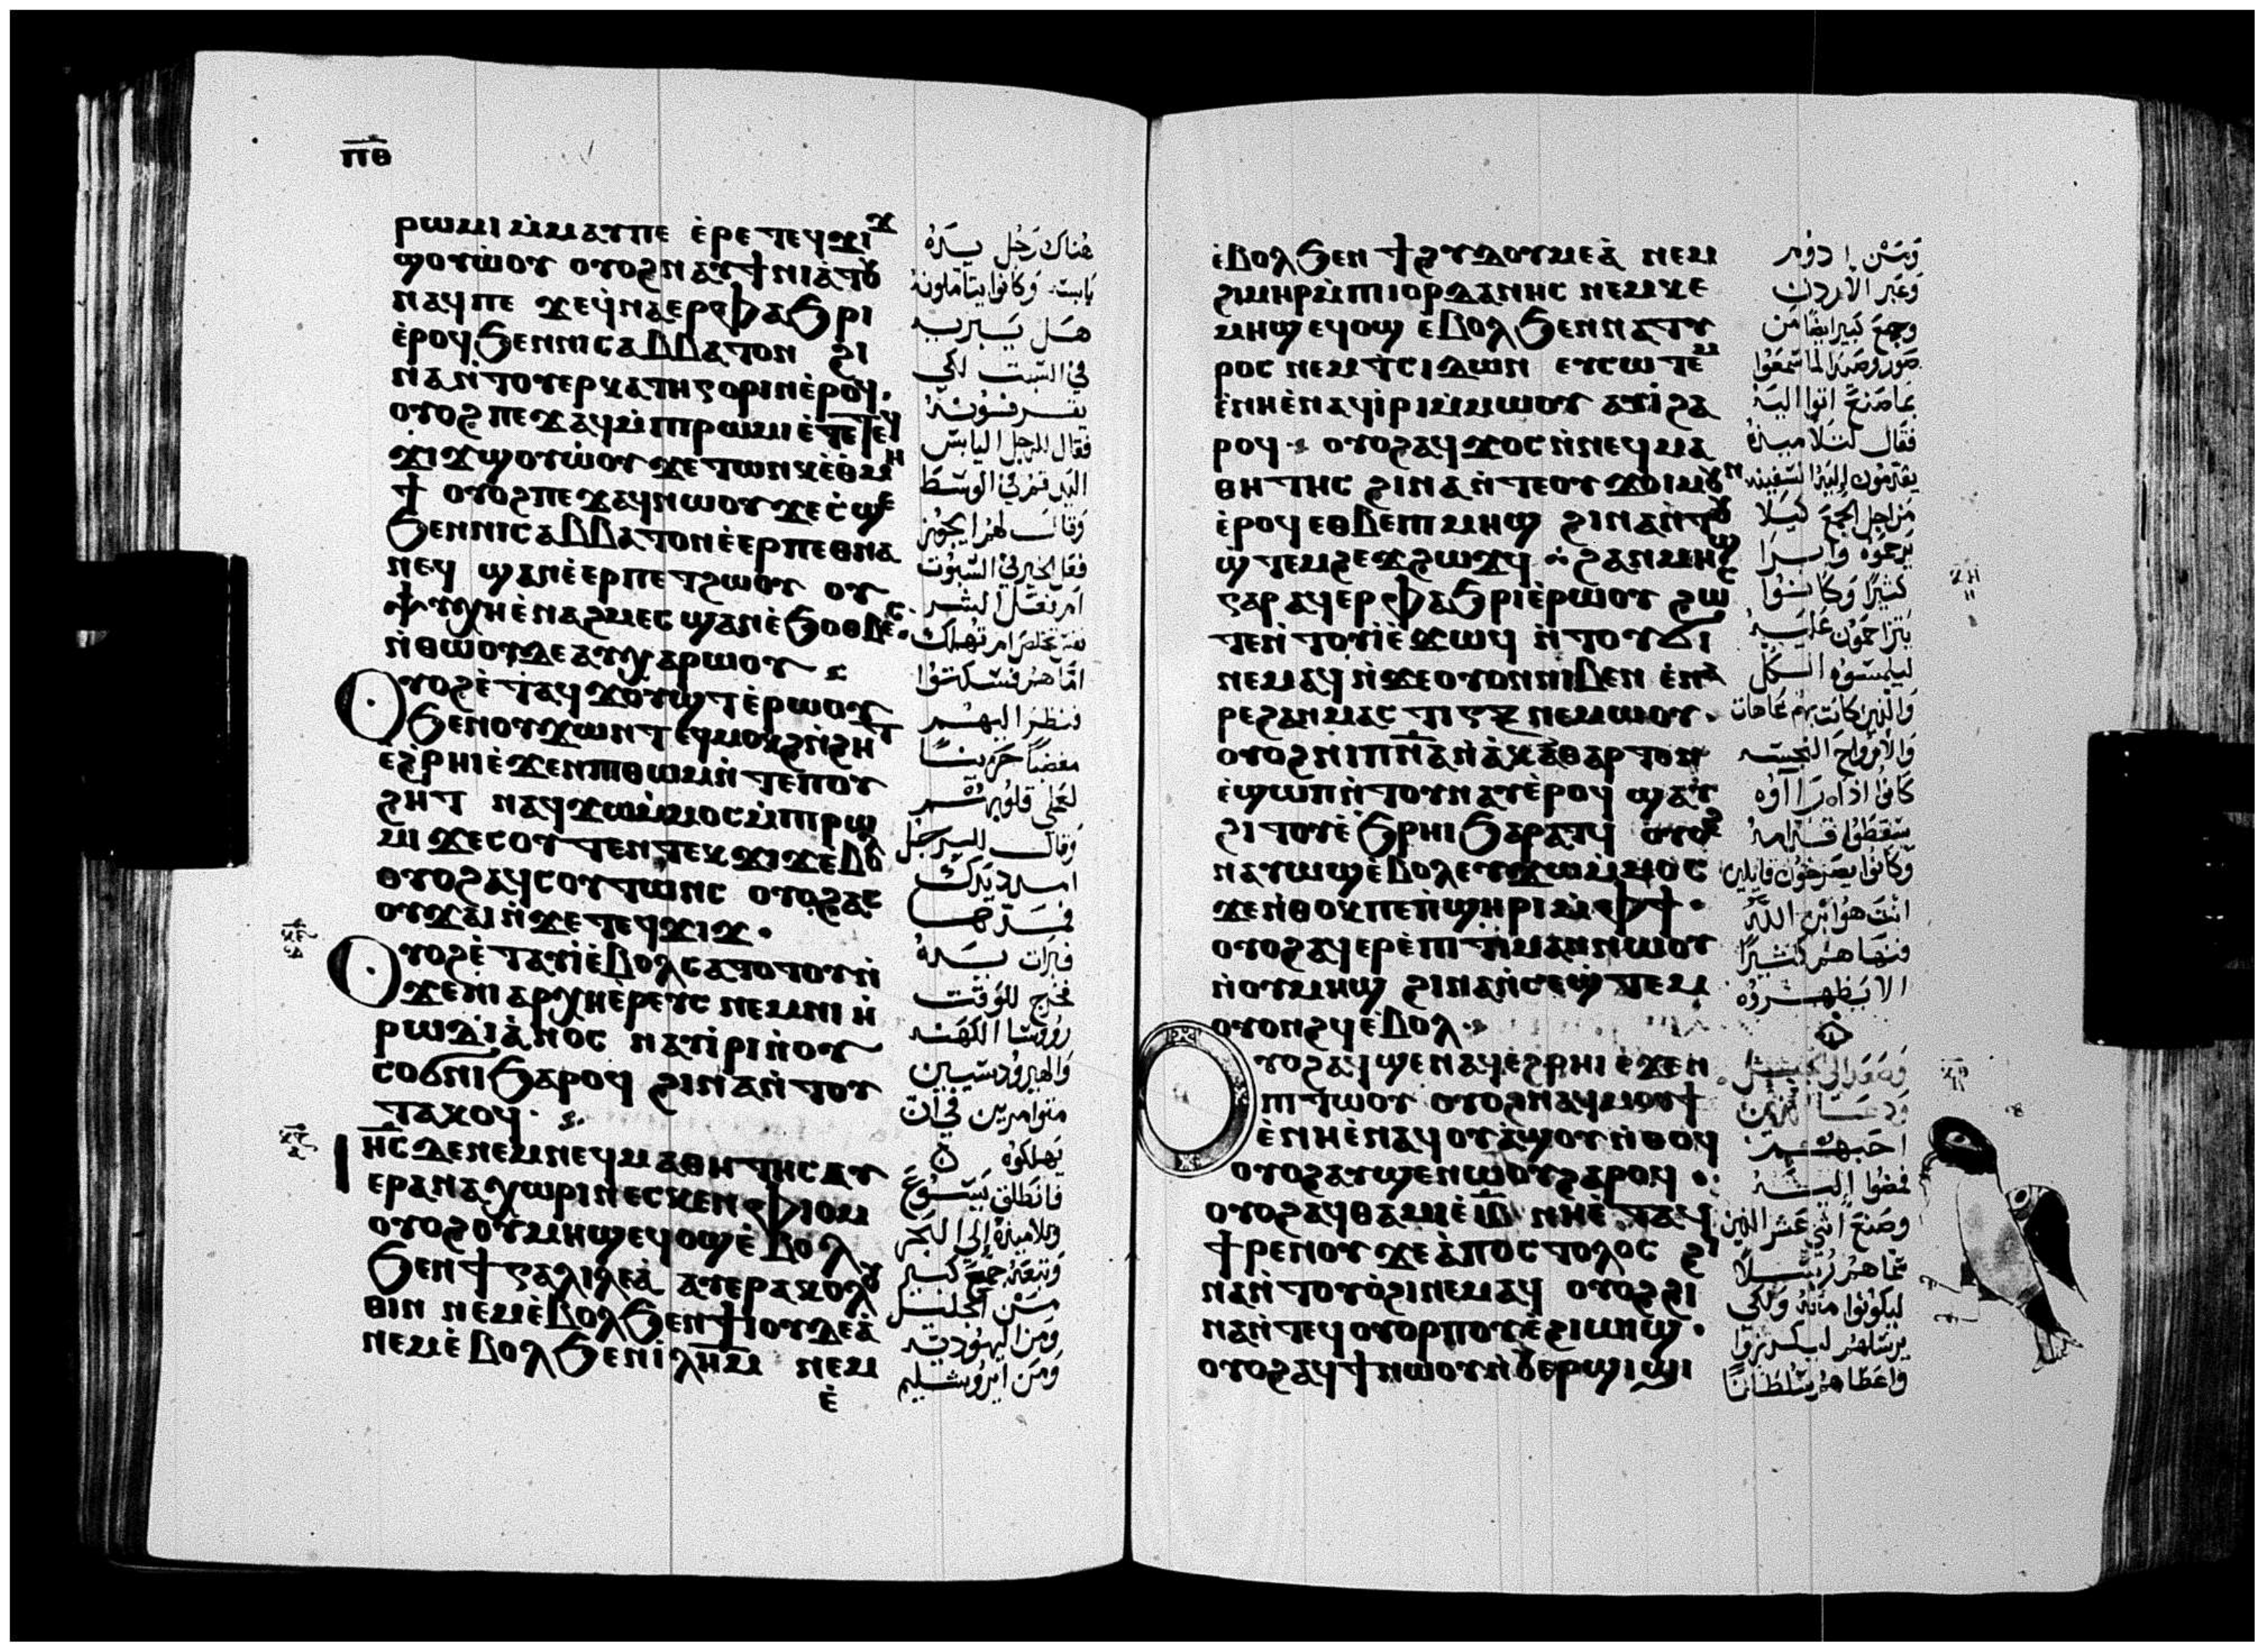 ⲡ̅ⲑ̅
ⲣⲱⲙⲓ ⲙ̀ⲙⲁⲩⲡⲉ ⲉ̀ⲣⲉ ⲧⲉϥϫⲓϫ
ϣⲟⲩⲱ̀ⲟⲩ ⲟⲩⲟϩ ⲛⲁⲩϯⲛⲓⲁ̀ⲧⲟⲩ
ⲛⲁϥⲡⲉ ϫⲉϥ̀ⲛⲁⲉⲣⲫⲁϧⲣⲓ
ⲉ̀ⲣⲟϥ ϧⲉⲛⲛⲓⲥⲁⲃⲃⲁⲧⲟⲛ ϩⲓ
ⲛⲁⲛ̀ⲧⲟⲩⲉⲣⲕⲁⲧⲏⲅⲟⲣⲓⲛⲉ̀ⲣⲟϥ.
ⲟⲩⲟϩ ⲡⲉϫⲁϥⲙ̀ⲡⲓⲣⲱⲙⲓ ⲉ̀ⲧⲉⲧⲉϥ
ϫⲓϫ ϣⲟⲩⲱ̀ⲟⲩ ϫⲉ ⲧⲱⲛⲕ ⲉ̀ⲑⲙⲏ
ϯ ⲟⲩⲟϩ ⲡⲉϫⲁϥⲛⲱⲟⲩ ϫⲉ ⲥ̀ϣⲉ
ϧⲉⲛⲛⲓⲥⲁⲃⲃⲁⲧⲟⲛ ⲉ̀ⲉⲣⲡⲉⲑⲛⲁ
ⲛⲉϥ ϣⲁⲛⲉ̀ⲉⲣⲡⲉⲧϩⲱⲟⲩ ⲟⲩ
ⲯⲩⲭⲏ ⲉ̀ⲛⲁϩⲙⲉⲥ ϣⲁⲛⲉ̀ϧⲟⲑⲃⲉⲥ.
ⲛ̀ⲑⲱⲟⲩ ⲇⲉ ⲁⲩⲭⲁⲣⲱⲟⲩ
ⲟⲩⲟϩ ⲉ̀ⲧⲁϥϫⲟⲩϣⲧ ⲉ̀ⲣⲱⲟⲩ
ϧⲉⲛⲟⲩϫⲱⲛⲧ ⲉϥⲙⲟⲕϩ ⲛ̀ϩⲏⲧ
ⲉϩ̀ⲣⲏⲓ ⲉ̀ϫⲉⲛⲡⲑⲱⲙ ⲛ̀ⲧⲉⲡⲟⲩ
ϩⲏⲧ ⲛⲁϥϫⲱⲙ̀ⲙⲟⲥ ⲙ̀ⲡⲓⲣⲱ
ⲙⲓ ϫⲉ ⲥⲟⲩⲧⲉⲛ ⲧⲉⲕϫⲓϫ ⲉⲃⲟⲗ
ⲟⲩⲟϩ ⲁϥⲥⲟⲩⲧⲱⲛⲥ ⲟⲩⲟϩ ⲁⲥ
ⲟⲩϫⲁⲓ ⲛ̀ϫⲉ ⲧⲉϥϫⲓϫ.
ⲟⲩⲟϩ ⲉ̀ⲧⲁⲩⲓ̀ ⲉ̀ⲃⲟⲗ ⲥⲁⲧⲟⲧⲟⲩ ⲛ̀
ϫⲉ ⲛⲓⲁⲣⲭⲏⲉ̀ⲣⲉⲩⲥ ⲛⲉⲙⲛⲓ ⲏ̀
ⲣⲱⲇⲓⲁ̀ⲛⲟⲥ ⲛⲁⲩⲓ̀ⲣⲓ ⲛ̀ⲟⲩ
ⲥⲟϭⲛⲓ ϧⲁⲣⲟϥ ϩⲓⲛⲁ ⲛ̀ⲧⲟⲩ
ⲧⲁⲕⲟϥ.
ⲓⲏ̅ⲥ̅ ⲇⲉ ⲛⲉⲙⲛⲉϥⲙⲁⲑⲏⲧⲏⲥ ⲁⲩ
ⲉⲣⲁⲛⲁⲭⲱⲣⲓⲛ ⲉⲥⲕⲉⲛ ⲫⲓⲟⲙ
ⲟⲩⲟϩ ⲟⲩⲙⲏϣ ⲉϥⲟϣ ⲉ̀ⲃⲟⲗ
ϧⲉⲛ ϯⲅⲁⲗⲓⲗⲉⲁ̀ ⲁⲩⲉⲣⲁⲕⲟⲗⲟⲩ
ⲑⲓⲛ ⲛⲉⲙ ⲉ̀ⲃⲟⲗ ϧⲉⲛ ϯⲓⲟⲩⲇⲉⲁ̀
ⲛⲉⲙ ⲉ̀ⲃⲟⲗ ϧⲉⲛ ⲓ̀ⲗ̅ⲏ̅ⲙ̅ ⲛⲉⲙ
ⲉ̀
هناك رجل يده
يابسة وكانوا يتأملونه
هل يبريه
في السبت لكي
يقرفونه
فقال للرجل اليابس
اليد قم في الوسط
وقال لهم ايجوز
فعل الخير في السبوت
ام فعل الشر
نفس تخلص ام تهلك
اما هم فسكتوا
فنظر اليهم
مغضبا حزينا
لعمى قلوبهم
وقال للرجل
امدد يدك
فمدها
فبرات يده
فخرج للوقت
روسا الكهنة
والهيرودسيين
متوامرين في ان
يهلكوه
فانطلق يسوع
وتلاميذه إلى البحر
وتبعه جمع كبير
من الجليل
ومن اليهودية
ومن ايروشليم
ⲉ̀ⲃⲟⲗ ϧⲉⲛ ϯϩⲩⲇⲟⲩⲙⲉⲁ̀ ⲛⲉⲙ
ϩⲓⲙⲏⲣ ⲙ̀ⲡⲓⲓⲟⲣⲇⲁⲛⲏⲥ ⲛⲉⲙ ⲕⲉ
ⲙⲏϣ ⲉϥⲟϣ ⲉ̀ⲃⲟⲗ ϧⲉⲛ ⲛⲁⲧⲩ
ⲣⲟⲥ ⲛⲉⲙ ⲧⲥⲓⲇⲱⲛ ⲉⲩⲥⲱⲧⲉⲙ
ⲉ̀ⲛⲏ ⲉ̀ⲛⲁϥⲓ̀ⲣⲓ ⲙ̀ⲙⲱⲟⲩ ⲁⲩⲓ̀ ϩⲁ
ⲣⲟϥ. ⲟⲩⲟϩ ⲁϥϫⲟⲥ ⲛ̀ⲛⲉϥⲙⲁ
ⲑⲏⲧⲏⲥ ϩⲓⲛⲁ ⲛ̀ⲧⲉⲟⲩϫⲟⲓ ⲙⲟⲩⲛ
ⲉ̀ⲣⲟϥ ⲉⲑⲃⲉ ⲡⲓⲙⲏϣ ϩⲓⲛⲁ ⲛ̀ⲧⲟⲩ
ϣ̀ⲧⲉⲙϩⲉϫϩⲱϫϥ ⁘ ϩⲁⲛⲙⲏϣ
ⲅⲁⲣ ⲁϥⲉⲣⲫⲁϧⲣⲓ ⲉ̀ⲣⲱⲟⲩ ϩⲱⲥ
ⲧⲉ ⲛ̀ⲧⲟⲩⲓ̀ ⲉ̀ϫⲱϥ ⲛ̀ⲧⲟⲩϭⲓ
ⲛⲉⲙⲁϥ ⲛ̀ϫⲉ ⲟⲩⲟⲛ ⲛⲓⲃⲉⲛ ⲉ̀ⲛⲁ
ⲣⲉ ϩⲁⲛⲙⲁⲥⲧⲓⲅⲝ ⲛⲉⲙⲱⲟⲩ.
ⲟⲩⲟϩ ⲛⲓⲡⲛ̅ⲁ̅ ⲛ̀ⲁ̀ⲕⲁⲑⲁⲣⲧⲟⲛ
ⲉ̀ϣⲱⲡ ⲛ̀ⲧⲟⲩⲛⲁⲩ ⲉ̀ⲣⲟϥ ϣⲁⲩ
ϩⲓⲧⲟⲩ ⲉ̀ϧⲣⲏⲓ ϧⲁⲣⲁⲧϥ ⲟⲩⲟϩ
ⲛⲁⲩⲱϣ ⲉ̀ⲃⲟⲗ ⲉⲩϫⲱⲙ̀ⲙⲟⲥ
ϫⲉ ⲛ̀ⲑⲟⲕ ⲡⲉ ⲡ̀ϣⲏⲣⲓ ⲙ̀ⲫϯ.
ⲟⲩⲟϩ ⲁϥⲉⲣⲉ̀ⲡⲓⲧⲓⲙⲁⲛ ⲛⲱⲟⲩ
ⲛ̀ⲟⲩⲙⲏϣ ϩⲓⲛⲁ ⲛ̀ⲥⲉϣ̀ⲧⲉⲙ
ⲟⲩⲟⲛϩϥ ⲉ̀ⲃⲟⲗ.
ⲟⲩⲟϩ ⲁϥϣⲉⲛⲁϥ ⲉ̀ϩⲣⲏⲓ ⲉ̀ϫⲉⲛ
ⲡⲓⲧⲱⲟⲩ ⲟⲩⲟϩ ⲛⲁϥⲙⲟⲩϯ
ⲉ̀ⲛⲏ ⲉ̀ⲛⲁϥⲟⲩⲁ̀ϣⲟⲩ ⲛ̀ⲑⲟϥ
ⲟⲩⲟϩ ⲁⲩϣⲉⲛⲱⲟⲩ ϩⲁⲣⲟϥ.
ⲟⲩⲟϩ ⲁϥⲑⲁⲙⲉ̀ ⲓ̅ⲃ̅ ⲛⲏ ⲉ̀ⲧⲁϥ
ϯⲣⲉⲛⲟⲩ ϫⲉ ⲁ̀ⲡⲟⲥⲧⲟⲗⲟⲥ ϩⲓ
ⲛⲁ ⲛ̀ⲧⲟⲩⲟ̀ϩⲓ ⲛⲉⲙⲁϥ ⲟⲩⲟϩ ϩⲓ
ⲛⲁ ⲛ̀ⲧⲉϥⲟⲩⲟⲣⲡⲟⲩ ⲉ̀ϩⲓⲱⲓϣ.
ⲟⲩⲟϩ ⲁϥϯⲛⲱⲟⲩ ⲛ̀ⲟⲩⲉⲣϣⲓϣⲓ
ومن ادوم
وعبر الاردن
وجمع كبير ايضا من
صور وصيدا لما سمعوا
بما صنع اتوا اليه
فقال لتلاميذه
يقدمون إليه السفينة
من اجل الجمع كيلا
يزحموه وابرا
كثيرا وكانوا
يتزاحمون عليه
ليلمسوه الكل
والذين كانت بهم عاهات
والأرواح النجسة
كانوا اذا راآوه
سقطوا قدامه
وكانوا يصرخون قايلين
انت هو ابن الله
فنهاهم كثيرا
الا يظهروه
وصعد الى الجبل
ودعا الذين
احبهم
فمضوا إليه
وصنع اثني عشر الذين
سماهم رسلا
ليكونوا معه ولكي
يرسلهم ليكرزوا
واعطاهم سلطانا